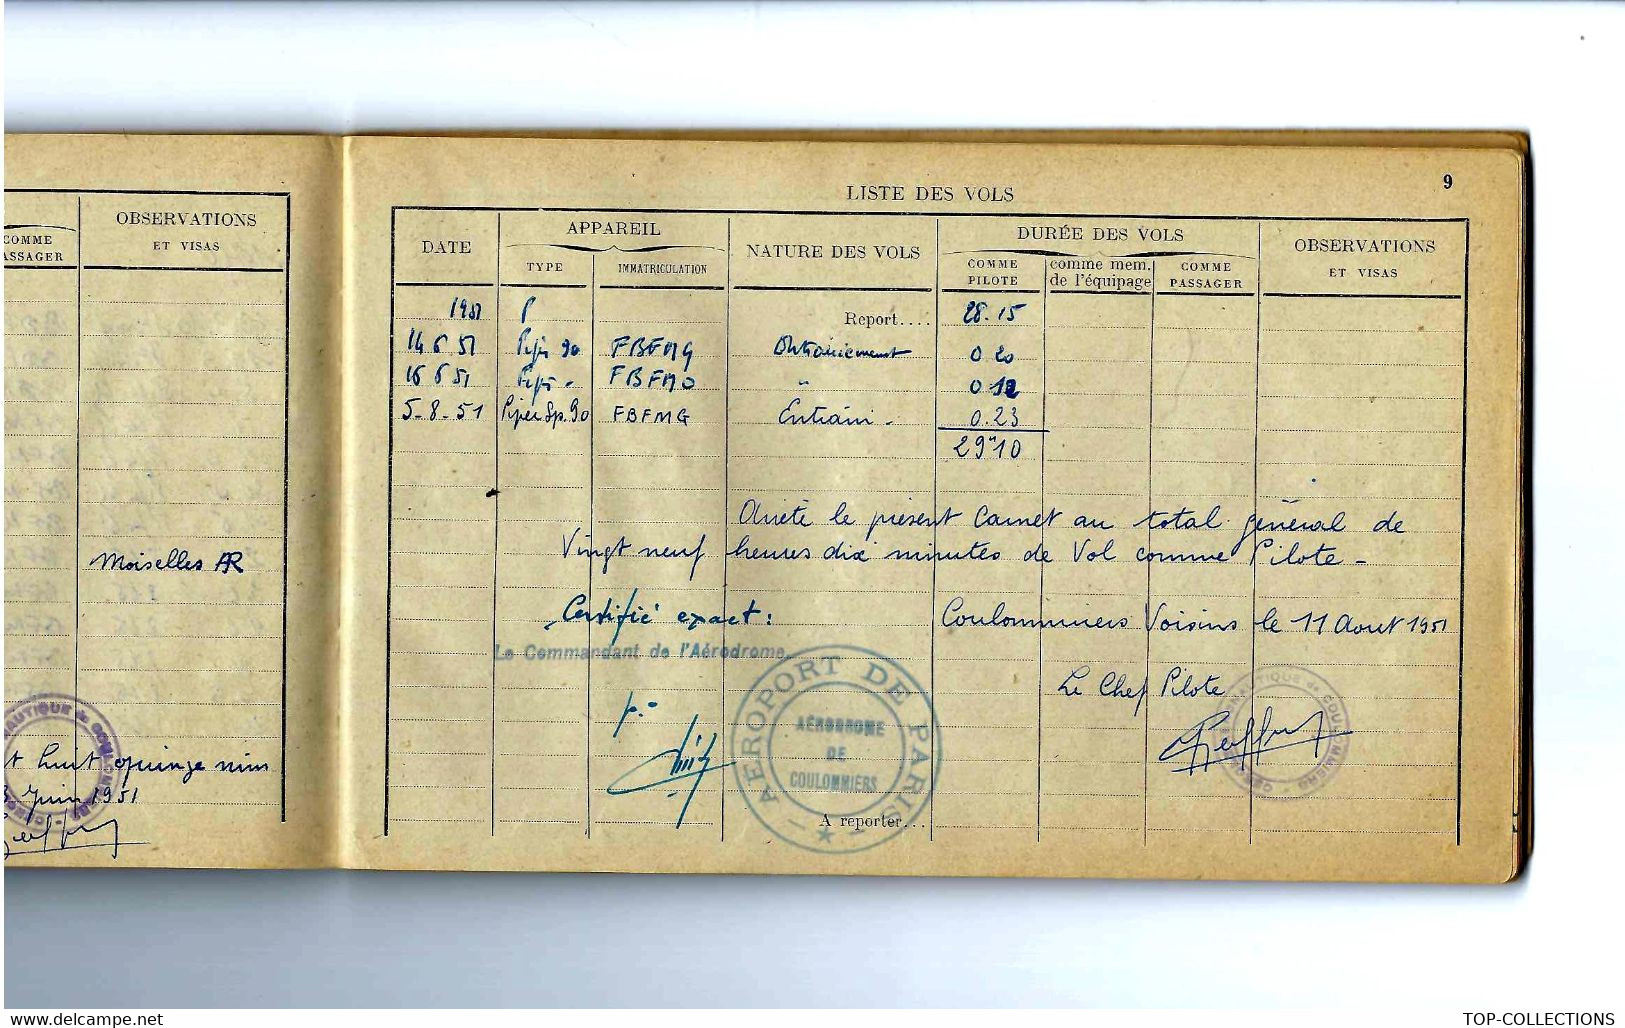 OBSERVATIONS
ET VISAS
COMME
ASSAGER
Moiselles AR
AUTIQUE de COULOMMIERS
t huit quinze min
Juin 1951
9
LISTE DES VOLS
DATE
APPAREIL
TYPE
IMMATRICULATION
NATURE DES VOLS
DURÉE DES VOLS
COMME
PILOTE
comme mem.
de l'équipage
COMME
PASSAGER
OBSERVATIONS
ET VISAS
1951 P Report.... 28.15
14 6 51 Piper 90 FBFMG Entrainement 0 20
16 6 51 Piper - FBFMO " 0 12
5-8-51 Piper Sp. 90 FBFMG Entrain - 0.23
29h10
Arrêté le présent Carnet au total général de
Vingt neuf heures dix minutes de Vol comme Pilote -
Certifié exact :
Coulommiers Voisins le 11 Aout 1951
Le Commandant de l'Aérodrome,
Le Chef Pilote
p.-
AEROPORT DE PARIS
AÉRODROME
DE
COULOMMIERS
AUTIQUE de COULOMMIERS
A reporter...
www.delcampe.net
TOP-COLLECTIONS